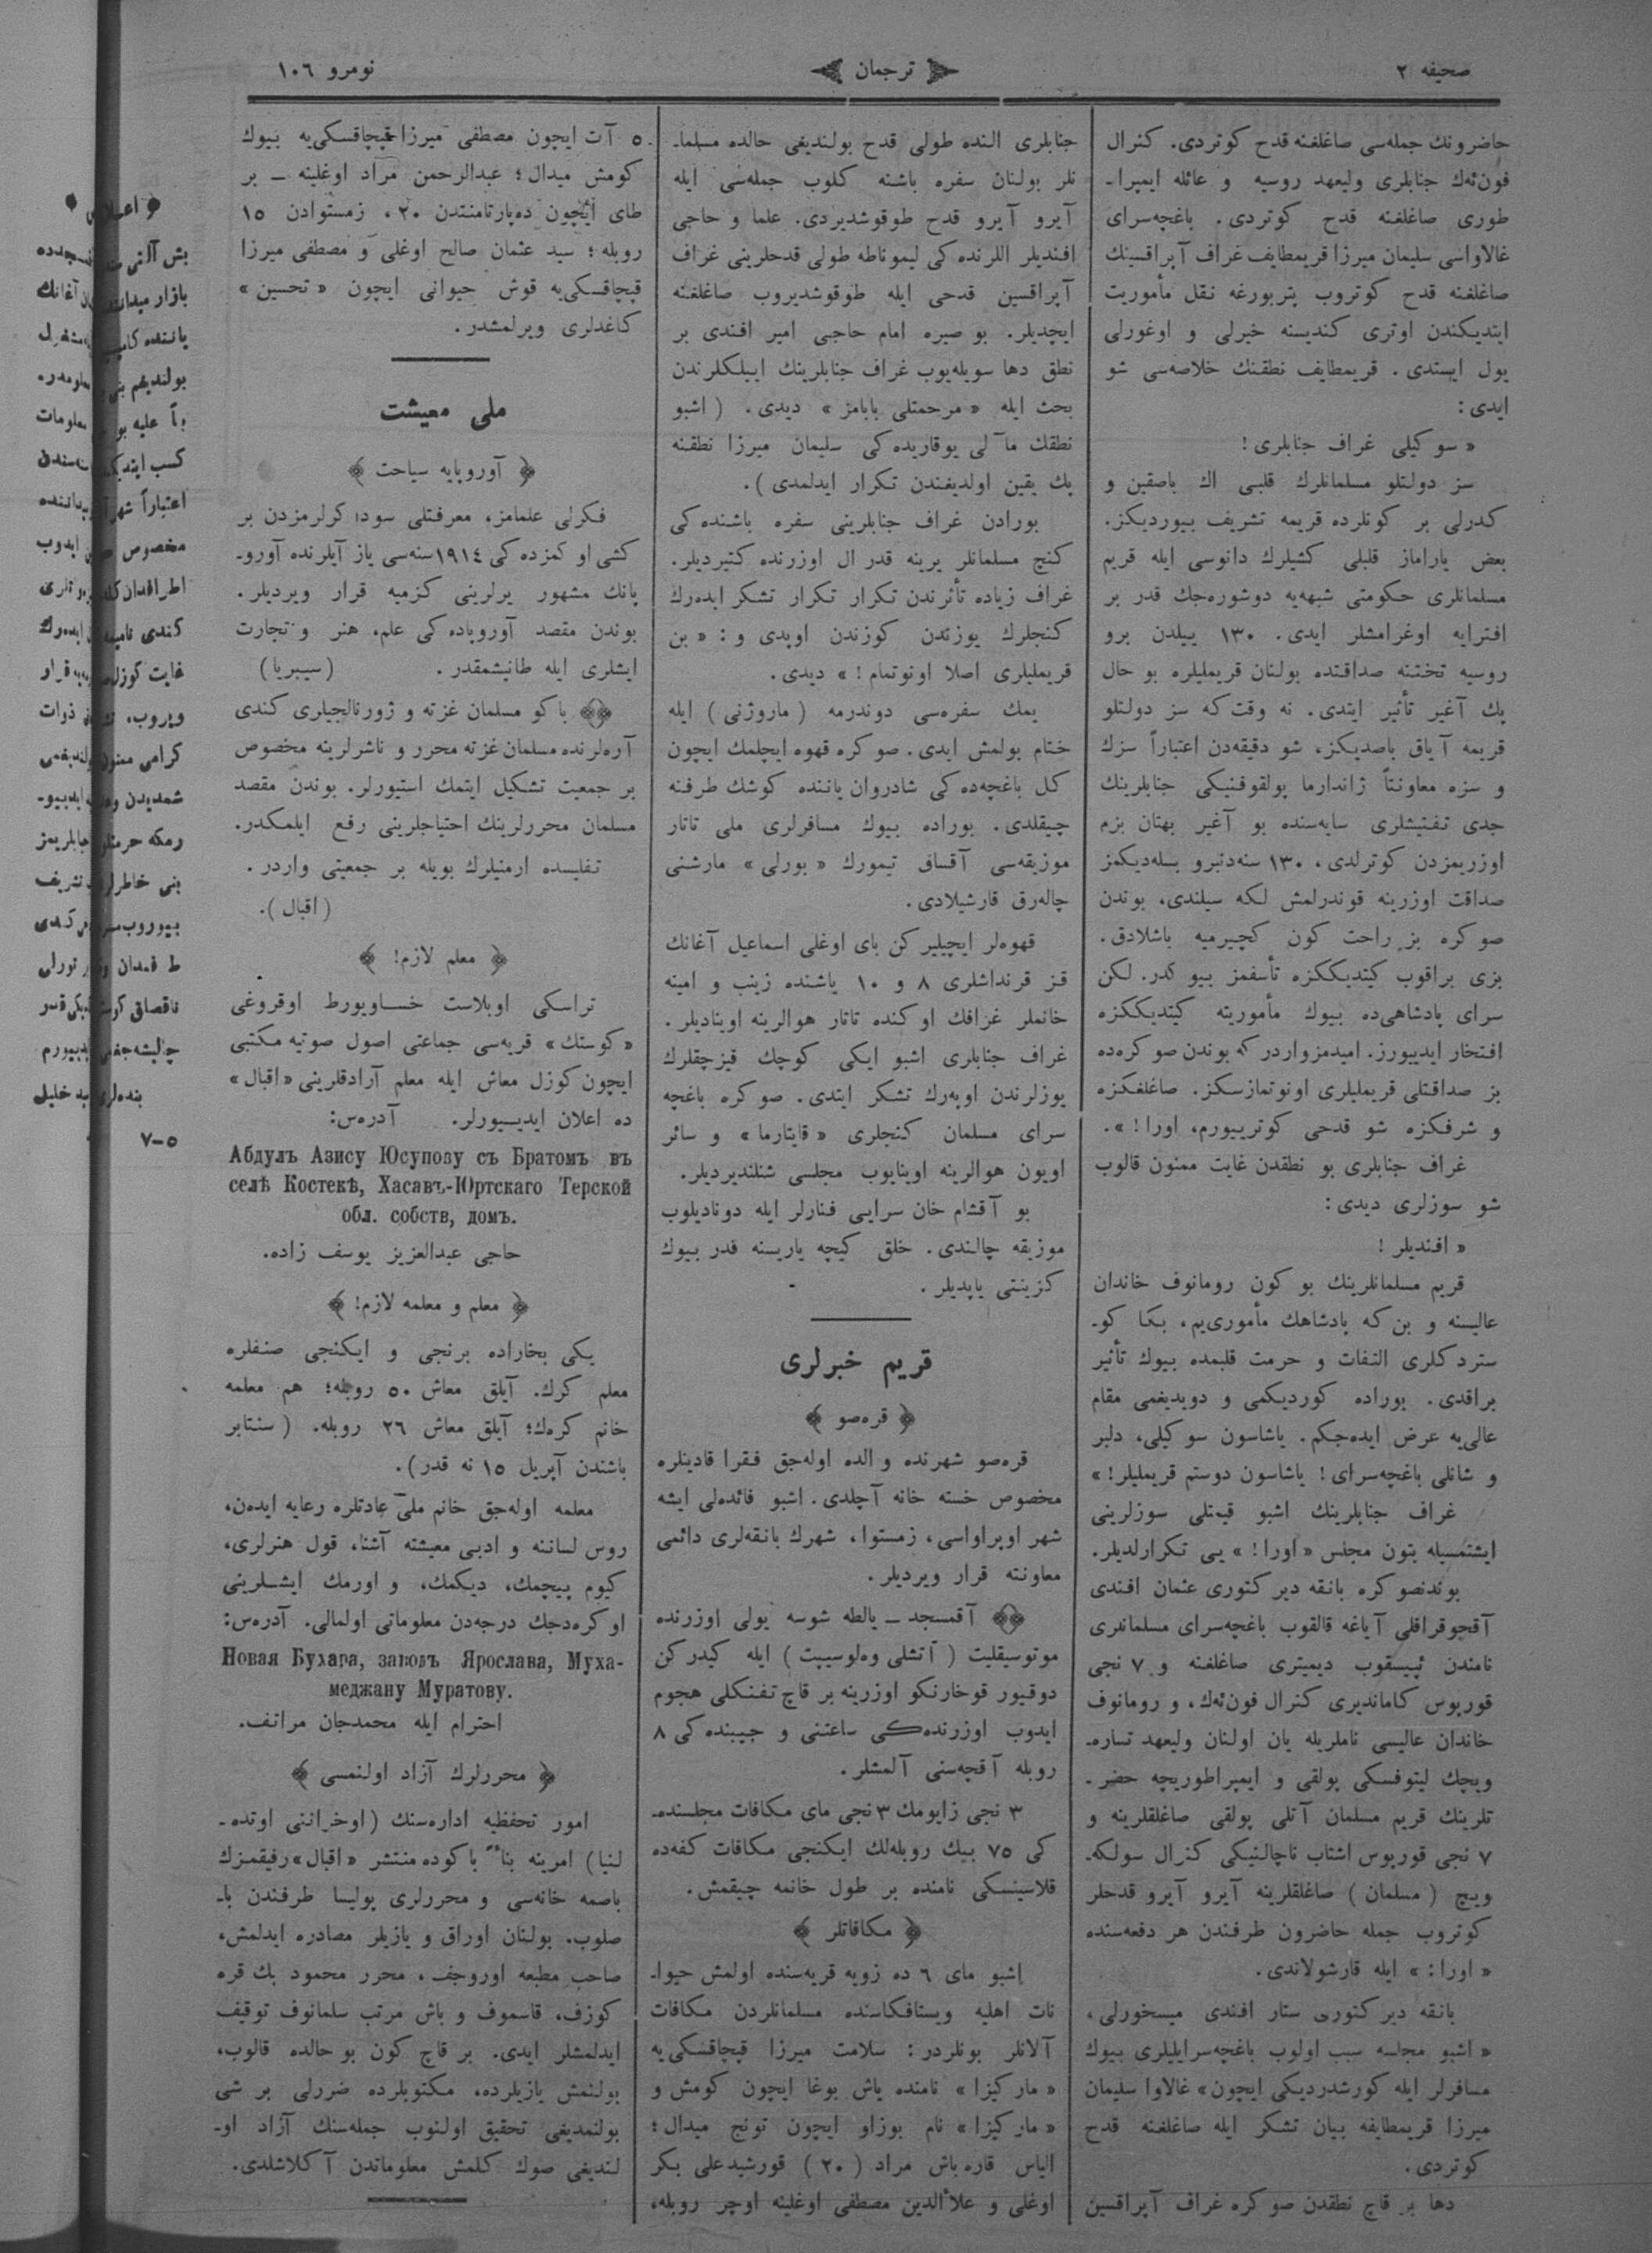 صحیفه ٢
ترجمان
نومرو ١٠٦
حاضرونك جمله‌سی صاغلغنه قدح كوتردی. كنرال
فون‌ئه‌ك جنابلری ولیعهد روسیه و عائله ایمپرا-
طوری صاغلغنه قدح كوتردی. باغچه‌سرای
غالاواسی سلیمان میرزا قریمطایف غراف آپراقسینك
صاغلغنه قدح كوتروب پتربورغه نقل مأموریت
ایتدیكندن اوتری كندیسنه خیرلی و اوغورلی
یول ایستدی. قریمطایف نطقنك خلاصه‌سی شو
ایدی:
« سوكیلی غراف جنابلری!
سز دولتلو مسلمانلرك قلبی اك یاصقین و
كدرلی بر كونلرده قریمه تشریف بیوردیكز.
بعض یاراماز قلبلی كشیلرك دانوسی ایله قریم
مسلمانلری حكومتی شبهه‌یه دوشوره‌جك قدر بر
افترایه اوغرامشلر ایدی. ١٣٠ ییلدن برو
روسیه تختنه صداقتده بولنان قریملیلره بو حال
پك آغیر تأثیر ایتدی. نه وقت كه سز دولتلو
قریمه آیاق باصدیكز، شو دقیقه‌دن اعتباراً سزك
و سزه معاونتاً ژاندارما پولقوفنیكی جنابلرینك
جدی تفتیشلری سایه‌سنده بو آغیر بهتان بزم
اوزریمزدن كوترلدی، ١٣٠ سنه‌دنبرو بسله‌دیكمز
صداقت اوزرینه قوندرلمش لكه سیلندی، بوندن
صوكره بز راحت كون كچیرمیه باشلادق.
بزی براقوب كیتدیككزه تأسفمز بیوكدر. لكن
سرای پادشاهی‌ده بیوك مأموریته كیتدیككزه
افتخار ایدییورز. امیدمز واردر كه بوندن صوكره‌ده
بز صداقتلی قریملیلری اونوتمازسكز. صاغلغكزه
و شرفكزه شو قدحی كوترییورم، اورا! ».
غراف جنابلری بو نطقدن غایت ممنون قالوب
شو سوزلری دیدی:
« افندیلر!
قریم مسلمانلرینك بو كون رومانوف خاندان
عالیسنه و بن كه پادشاهك مأموری‌یم، بكا كو-
ستردكلری التفات و حرمت قلبمده بیوك تأثیر
براقدی. بوراده كوردیكمی و دویدیغمی مقام
عالی‌یه عرض ایده‌جكم. یاشاسون سوكیلی، دلبر
و شانلی باغچه‌سرای! یاشاسون دوستم قریملیلر! »
غراف جنابلرینك اشبو قیمتلی سوزلرینی
ایشتمسیله بتون مجلس «اورا! » یی تكرارلدیلر.
بوندنصوكره بانقه دیركتوری عثمان افندی
آقچوقراقلی آیاغه قالقوب باغچه‌سرای مسلمانلری
نامندن ئپیسقوب دیمیتری صاغلغنه و ٧ نجی
قورپوس كاماندیری كنرال فون‌ئه‌ك، و رومانوف
خاندان عالیسی ناملریله یان اولنان ولیعهد تساره-
ویچك لیتوفسكی پولقی و ایمپراطوریچه حضر-
تلرینك قریم مسلمان آتلی پولقی صاغلقلرینه و
٧ نجی قورپوس اشتاب ناچالنیكی كنرال سولكه-
ویچ (مسلمان) صاغلقلرینه آیرو آیرو قدحلر
كوتروب جمله حاضرون طرفندن هر دفعه‌سنده
« اورا! » ایله قارشولاندی.
بانقه دیركتوری ستار افندی میسخورلی،
« اشبو مجلسه سبب اولوب باغچه‌سرایلیلری بیوك
مسافرلر ایله كورشدردیكی ایچون» غالاوا سلیمان
میرزا قریمطایفه بیان تشكر ایله صاغلغنه قدح
كوتردی.
دها بر قاچ نطقدن صوكره غراف آپراقسین
جنابلری النده طولی قدح بولندیغی حالده مسلما-
نلر بولنان سفره باشنه كلوب جمله‌سی ایله
آیرو آیرو قدح طوقوشدیردی. علما و حاجی
افندیلر اللرنده‌كی لیموناطه طولی قدحلرینی غراف
آپراقسین قدحی ایله طوقوشدیروب صاغلغنه
ایچدیلر. بو صیره امام حاجی امیر افندی بر
نطق دها سویله‌یوب غراف جنابلرینك اییلكلرندن
بحث ایله « مرحمتلی بابامز » دیدی. (اشبو
نطقك مآلی یوقاریده‌كی سلیمان میرزا نطقنه
پك یقین اولدیغندن تكرار ایدلمدی).
بورادن غراف جنابلرینی سفره باشنده‌كی
كنج مسلمانلر یرینه قدر ال اوزرنده كتیردیلر.
غراف زیاده تأثرندن تكرار تكرار تشكر ایده‌رك
كنجلرك یوزندن كوزندن اوپدی و: « بن
قریملیلری اصلا اونوتمام! » دیدی.
یمك سفره‌سی دوندرمه (ماروژنی) ایله
ختام بولمش ایدی. صوكره قهوه ایچلمك ایچون
كل باغچه‌ده‌كی شادروان یاننده كوشك طرفنه
چیقلدی. بوراده بیوك مسافرلری ملی تاتار
موزیقه‌سی آقساق تیمورك « بورلی » مارشنی
چاله‌رق قارشیلادی.
قهوه‌لر ایچیلیركن بای اوغلی اسماعیل آغانك
قز قرنداشلری ٨ و ١٠ یاشنده زینب و امینه
خانملر غرافك اوكنده تاتار هوالرینه اوینادیلر.
غراف جنابلری اشبو ایكی كوچك قیزچقلرك
یوزلرندن اوپه‌رك تشكر ایتدی. صوكره باغچه
سرای مسلمان كنجلری « قایتارما » و سائر
اویون هوالرینه اویناییوب مجلسی شنلندیردیلر.
بو آقشام خان سرایی فنارلر ایله دوناديلوب
موزیقه چالندی. خلق كیچه یاریسنه قدر بیوك
كزینتی یاپدیلر.
قریم خبرلری
﴿ قره‌صو ﴾
قره‌صو شهرنده والده اوله‌جق فقرا قادینلره
مخصوص خسته خانه آچلدی. اشبو فائده‌لی ایشه
شهر اوپراواسی، زمستوا، شهرك بانقه‌لری دائمی
معاونته قرار ویردیلر.
آقمسجد – یالطه شوسه یولی اوزرنده
موتوسیقلیت (آتشلی وه‌لوسیپت) ایله كیدركن
دوقیور قوخارنكو اوزرینه بر قاچ تفنكلی هجوم
ایدوب اوزرنده‌كی ساعتنی و جیبنده‌كی ٨
روبله آقچه‌سنی آلمشلر.
٣ نجی زایومك ٣ نجی مای مكافات مجلسنده-
كی ٧٥ بیك روبله‌لك ایكنجی مكافات كفه‌ده
قلاسینسكی نامنده بر طول خانمه چیقمش.
﴿ مكافاتلر ﴾
اشبو مای ٦ ده زویه قریه‌سنده اولمش حیوا-
نات اهلیه ویستافكاسنده مسلمانلردن مكافات
آلانلر بونلردر: سلامت میرزا قپچاقسكی‌یه
« ماركیزا » نامنده یاش بوغا ایچون كومش و
« ماركیزا » نام بوزاو ایچون تونج میدال؛
الیاس قاره باش مراد (٢٠) قورشیدعلی بكر
اوغلی و علاءالدین مصطفی اوغلینه اوچر روبله،
٥٠ آت ایچون مصطفی میرزا قپچاقسكی‌یه بیوك
كومش میدال؛ عبدالرحمن مراد اوغلینه – بر
طای ایچون ده‌پارتامنتدن ٢٠، زمستوادن ١٥
روبله؛ سید عثمان صالح اوغلی و مصطفی میرزا
قپچاقسكی‌یه قوش حیوانی ایچون « تحسین »
كاغدلری ویرلمشدر.
ملی معیشت
﴿ آوروپایه سیاحت ﴾
فكرلی علمامز، معرفتلی سوداكرلرمزدن بر
كشی اوكمزده‌كی ١٩١٤ سنه‌سی یاز آیلرنده آورو-
پانك مشهور یرلرینی كزمیه قرار ویردیلر.
بوندن مقصد آوروپاده‌كی علم، هنر و تجارت
ایشلری ایله طانیشمقدر. (سیبریا)
باكو مسلمان غزته و ژورنالجیلری كندی
آره‌لرنده مسلمان غزته محرر و ناشرلرینه مخصوص
بر جمعیت تشكیل ایتمك استیورلر. بوندن مقصد
مسلمان محررلرینك احتیاجلرینی رفع ایلمكدر.
تفلیسده ارمنیلرك بویله بر جمعیتی واردر.
(اقبال).
﴿ معلم لازم! ﴾
تراسكی اوبلاست خساویورط اوقروغی
«كوستك» قریه‌سی جماعتی اصول صوتیه مكتبی
ایچون كوزل معاش ایله معلم آرادقلرینی «اقبال»
ده اعلان ایدییورلر. آدره‌س:
Абдулъ Азису Юсупову съ Братомъ въ
селѣ Костекѣ, Хасавъ-Юртскаго Терской
обл. собств, домъ.
حاجی عبدالعزیز یوسف زاده.
﴿ معلم و معلمه لازم! ﴾
یكی بخاراده برنجی و ایكنجی صنفلره
معلم كرك. آیلق معاش ٥٠ روبله؛ هم معلمه
خانم كره‌ك؛ آیلق معاش ٢٦ روبله. (سنتابر
باشندن آپریل ١٥ نه قدر).
معلمه اوله‌جق خانم ملی عادتلره رعایه ایده‌ن،
روس لساننه و ادبی معیشته آشنا، قول هنرلری،
كیوم پیچمك، دیكمك، و اورمك ایشلرینی
اوكره‌دجك درجه‌دن معلوماتی اولمالی. آدره‌س:
Новая Бухара, заводъ Ярослава, Муха-
меджану Муратову.
احترام ایله محمدجان مراتف.
﴿ محررلرك آزاد اولنمسی ﴾
امور تحفظیه اداره‌سنك (اوخراننی اوتده-
لنیا) امرینه بناءً باكوده منتشر «اقبال» رفیقمزك
باصمه خانه‌سی و محررلری پولیسا طرفندن با-
صلوب. بولنان اوراق و یازیلر مصادره ایدلمش،
صاحب مطبعه اوروجف، محرر محمود بك قره
كوزف، قاسموف و باش مرتب سلمانوف توقیف
ایدلمشلر ایدی. بر قاچ كون بو حالده قالوب،
بولنمش یازیلرده، مكتوبلرده ضررلی بر شی
بولنمدیغی تحقیق اولنوب جمله‌سنك آزاد او-
لندیغی صوك كلمش معلوماتدن آكلاشلدی.
بش آلتی
بازار آغانك
یاننده
بولندیغم
علیه معلومات
كسب
اعتباراً
مخصوص ایدوب
اطرافدان
كندی ایده‌رك
غایت كوزل
ویروب، ذوات
كرامی ممنون
شمدیدن
رمكه
بنی تشریف
بیوروب
خلیل
٥–٧